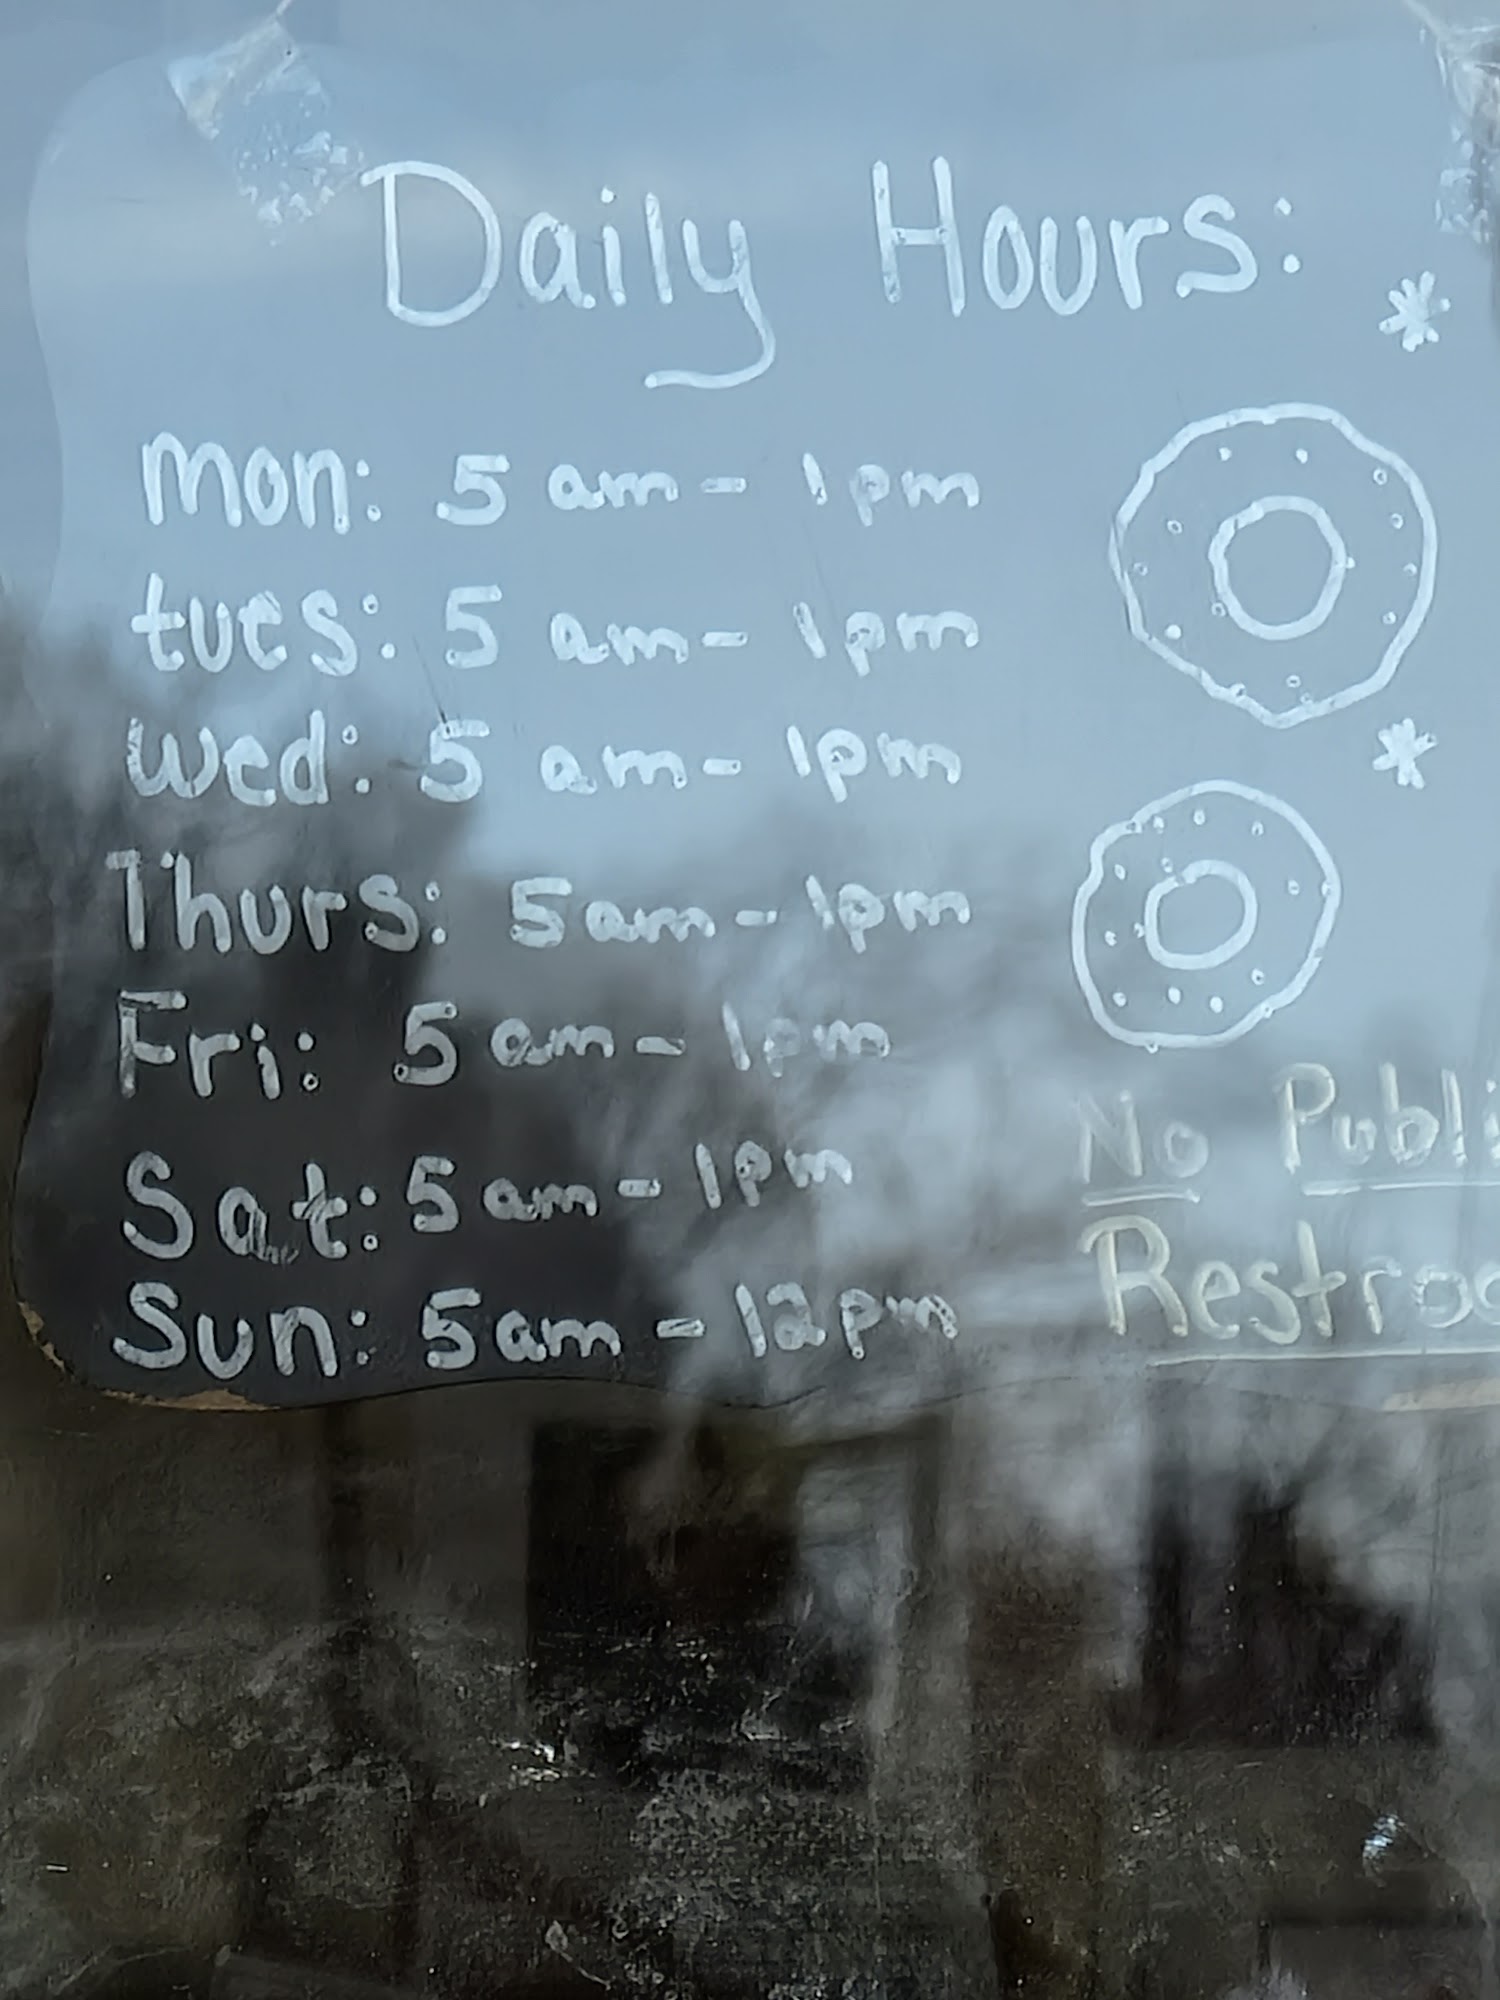 Daily Hours:
mon: 5 am - 1pm
tues: 5 am - 1pm
wed: 5 am - 1pm
Thurs: 5am - 1pm
Fri: 5 am - 1pm
Sat: 5am - 1pm
Sun: 5am - 12pm
No Publi
Restroo